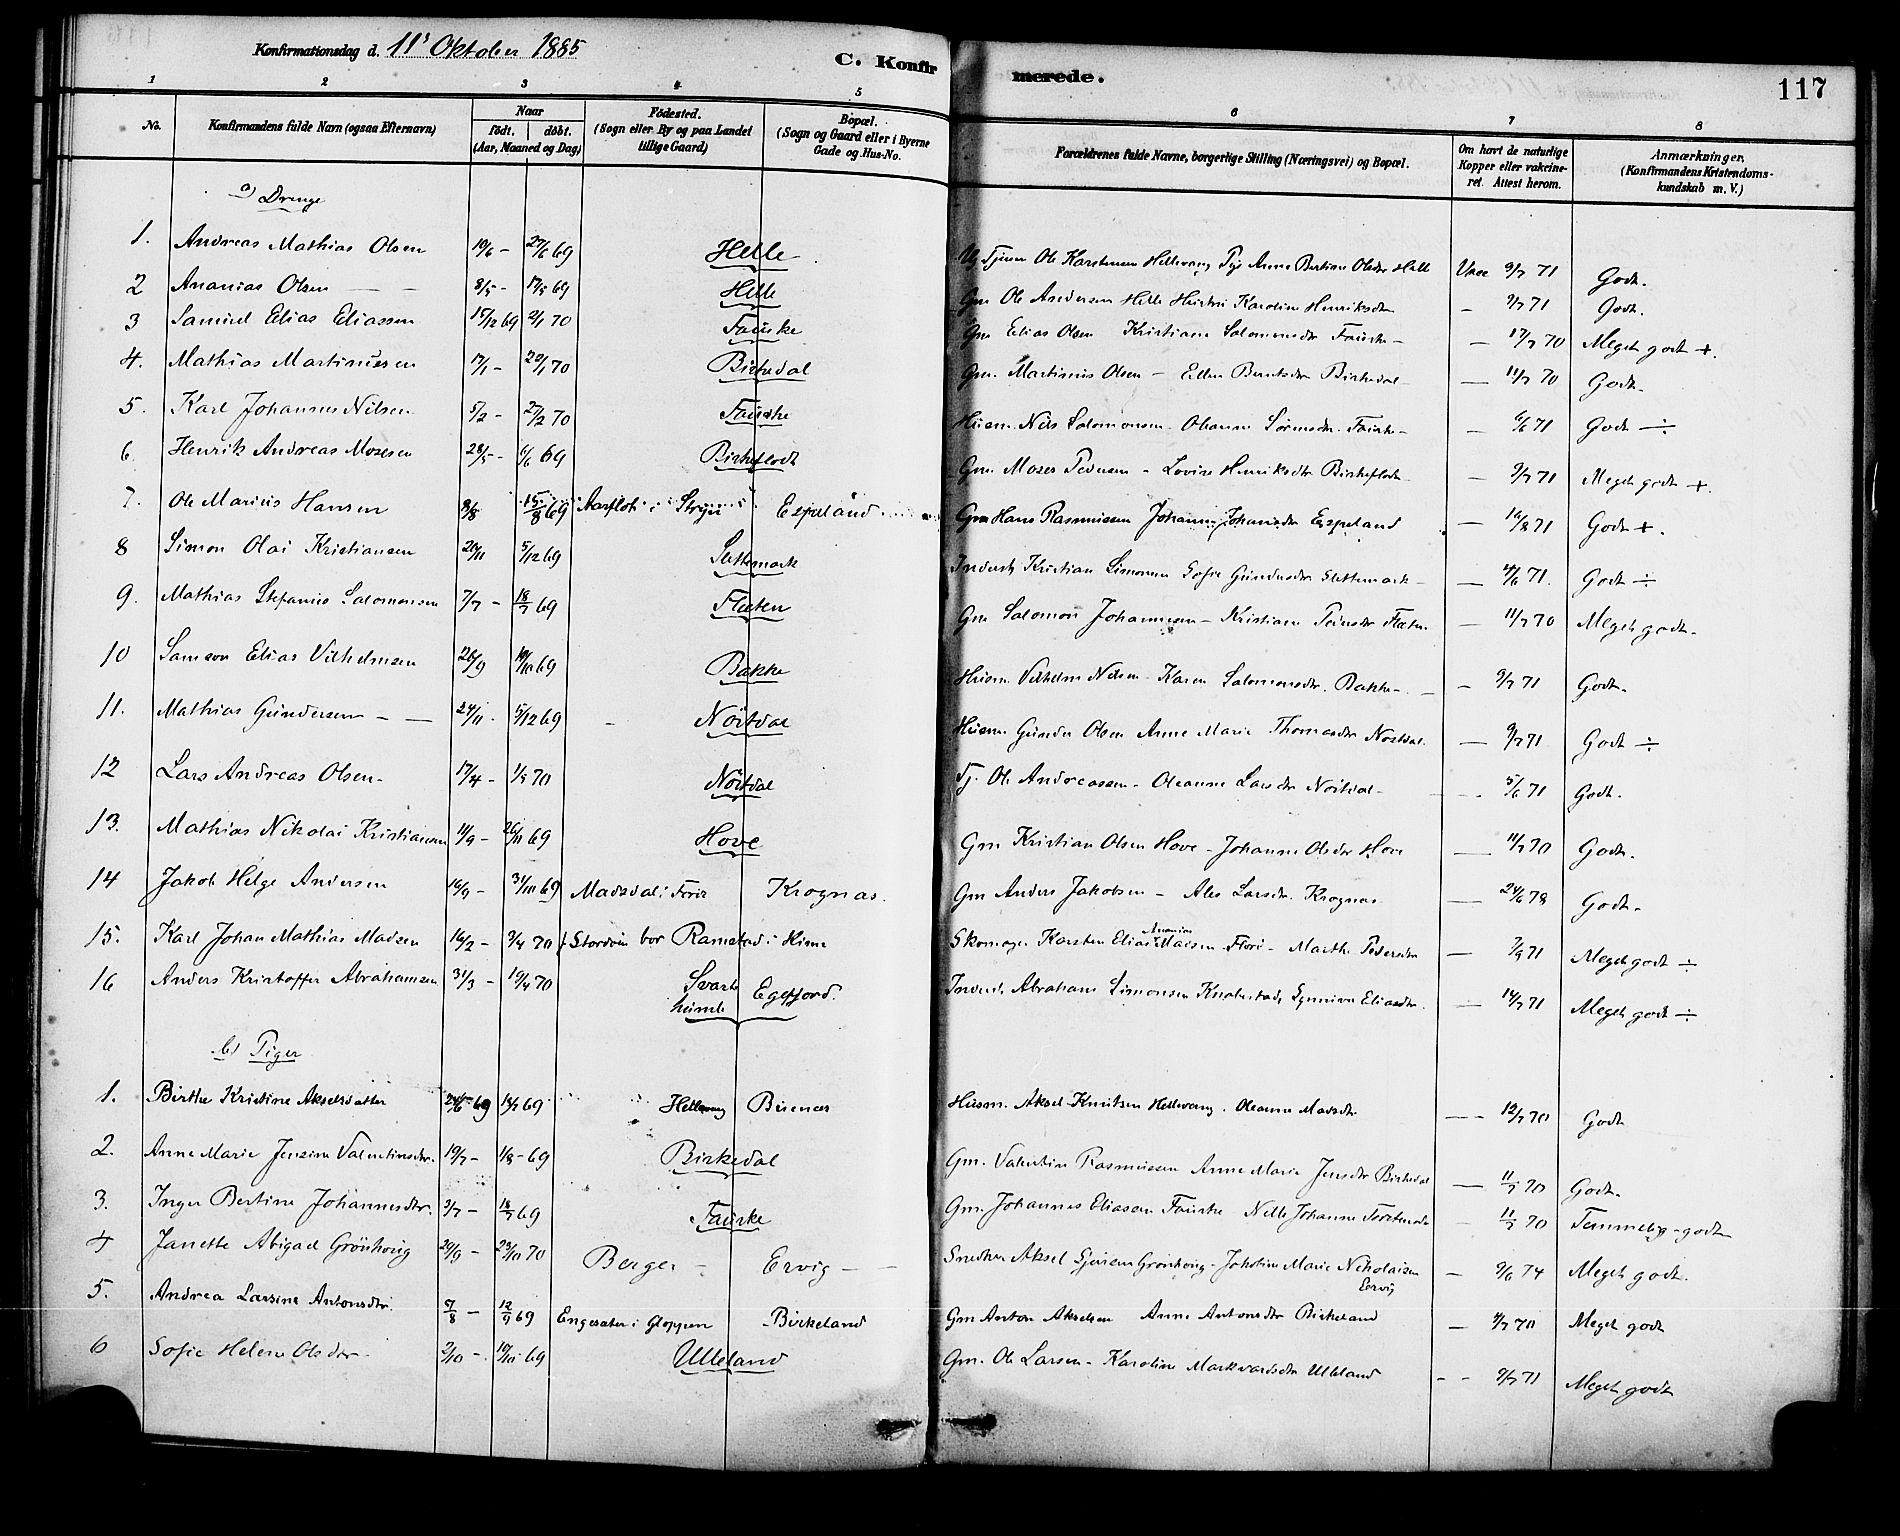 Konfirmationsdag d. 11' Oktober 1885
C. Konfirmerede.
117
1 2 3 4 5 6 7 8
No.
Konfirmandens fulde Navn (ogsaa Efternavn)
Naar
födt. döbt.
(Aar, Maaned og Dag)
Födested.
(Sogn eller By og paa Landet
tillige Gaard)
Bopæl.
(Sogn og Gaard eller i Byerne
Gade og Hus-No.
Forældrenes fulde Navne, borgerlige Stilling (Næringsvei) og Bopæl.
Om havt de naturlige
Kopper eller vakcine-
ret. Attest herom.
Anmærkninger,
(Konfirmandens Kristendoms-
kundskab m. V.)
a) Drenge
1. Andreas Mathias Olsen 19/6 - 27/6 69 Helle Ole Karstensen Hellevang Anne Bertine Olsdr Helle Vacc 9/7 71 Godt.
2 Ananias Olsen — — 8/5 - 17/5 69 Helle Gm Ole Andersen Helle Hustru Karoline Henriksdtr - 9/7 71 Godt.
3 Samuel Elias Eliassen 15/12 69 2/1 70 Fauske Gm Elias Olsen Kristiane Salomonsdtr Fauske - — 17/7 70 Meget godt +.
4. Mathias Martinussen 17/1 - 20/1 70 Birkedal Gm. Martinus Olsen - Ellen Berntsdtr Birkedal — 11/7 70 Godt.
5. Karl Johannes Nilsen 5/2 - 27/2 70 Fauske Husm. Nils Salomonsen - Oleanne Sörensdtr. Fauske - - 6/6 71 Godt ÷
6. Henrik Andreas Mosesen 28/5 - 6/6 69 Birkeflodt Gm. Moses Pedersen - Lovise Henriksdtr Birkeflodt - 9/7 71 Meget godt +.
7. Ole Marius Hansen 8/8 15/8 69 Aarflot i Stryn Espeland Gm Hans Rasmussen Johanne Johansdtr Espeland — 16/8 71 Godt +.
8 Simon Olai Kristiansen 20/11 5/12 69 Slettemark Inderst Kristian Simonsen Sofie Gundersdtr Slettemark - — 4/6 71. Godt ÷
9. Mathias Stefanus Salomonsen 7/7 - 18/7 69 Fleten Gm Salomon Johannesen - Kristiane Fleten — 11/7 70 Meget godt.
10 Samson Elias Vilhelmsen 26/9 10/10 69 Bakke Husm. Vilhelm Nilsen - Karen Salomonsdtr. Bakke - 9/7 71 Godt.
11. Mathias Gundersen — — 24/11 - 5/12 69 Nöstdal Husm. Gunder Olsen Anne Marie Thomasdtr Nöstdal. — 9/7 71 Godt ÷
12 Lars Andreas Olsen - 17/4 - 1/5 70 Nöstdal Tj. Ole Andreassen - Oleanne Larsdtr Nöstdal - 5/6 71 Godt.
13. Mathias Nikolai Kristiansen 11/9 - 26/11 69 Hove Gm Kristian Olsen Hove - Johanne Olsdtr Hove — 11/7 70 Godt.
14 Jakob Helge Andersen 16/9 - 31/10 69 Madsdal i Förde Krognæs. Gm Anders Jakobsen - Ales Larsdtr. Krognæs — 24/6 78 Godt.
15. Karl Johan Mathias Madsen 16/2 - 3/4 70 bor Ramstad i Kinn Skomager Karsten Elias Ananias Madsen Florö - Marthe Pedersdtr — 7/9 71 Meget godt ÷
16 Anders Kristoffer Abrahamsen 31/3 - 19/4 70 Svarthumle Egefjord. Inderst Abraham Simonsen Synnive Eliasdtr. — 14/7 71 Meget godt ÷
b) Piger
1. Birthe Kristine Akselsdatter 24/6 69 14/7 69 Hellevang Husm. Aksel Knutsen Hellevang. Oleanne Madsdtr — 12/7 70 Godt
2. Anne Marie Jensine Valentinsdtr. 19/7 - 1/8 - 69 Birkedal Gm. Valentin Rasmussen Anne Marie Jensdtr Birkedal — 11/7 70 Godt.
3. Inger Bertine Johannesdtr. 3/7 - 18/7 69 Fauske Gm. Johannes Eliassen Fauske Nille Johanne - 11/7 70 Temmelig-godt
4 Janette Abigael Grönhoug 29/9 - 23/10 70 Bergen - Ervig — Snedker Aksel Sjursen Grönhoug - Marie Nikolaisen Ervig — 9/6 74 Meget godt.
5. Andrea Larsine Antonsdtr. 5/8 - 12/9 69 Engesæter i Gloppen Birkeland Gm Anton Akselsen Anne Antonsdtr Birkeland — 11/7 70 Meget godt
6 Sofie Helene Olsdtr - 2/10 - 10/10 69 Ulleland Gm. Ole Larsen - Karoline Markvardsdtr Ulleland - - 9/7 71 Meget godt